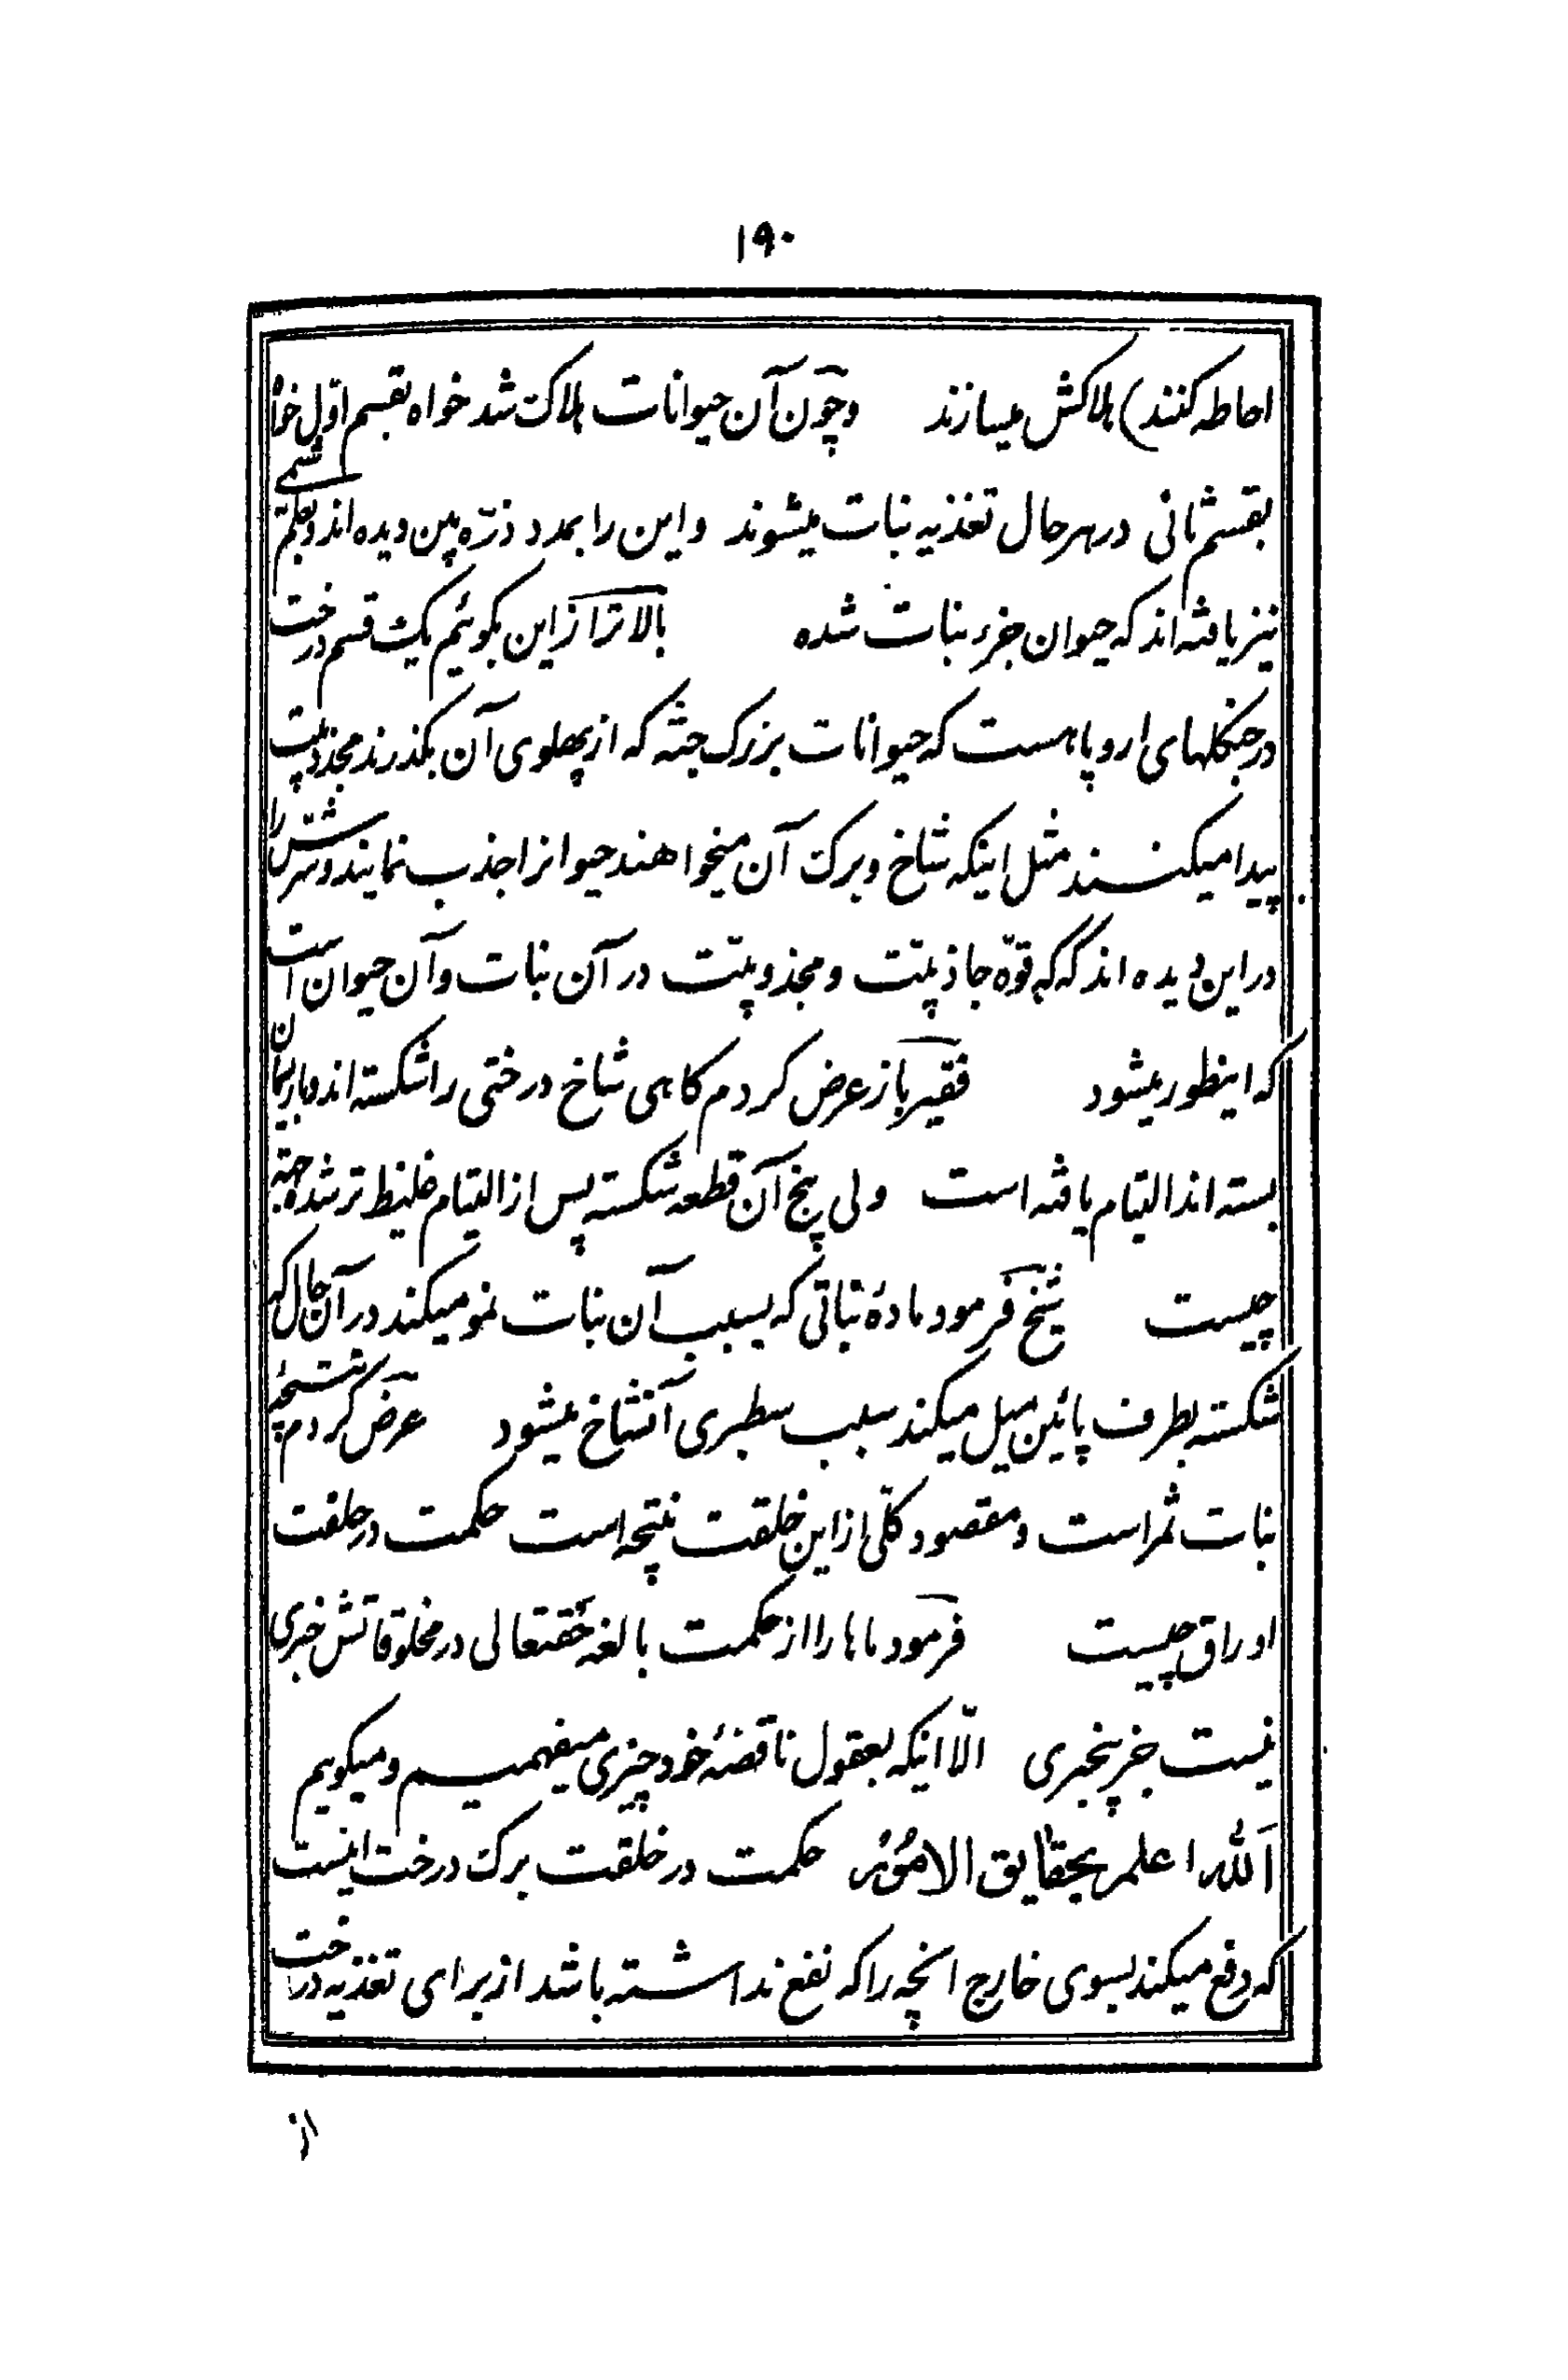 ۱۹۰
احاطه کنند) هلاکش میسازند وچون آن حیوانات هلاک شد خواه بقسم اوّل خواه
بقسم ثانی در هر حال تغذیه نبات میشوند واین را بمدد ذرّه بین دیده اند وبعلم شیمی
نیز یافته اند که حیوان جزء نبات شده بالاتر از این بگوئیم یک قسم درخت
در جنگلهای اروپا هست که حیوانات بزرک جثّه که از پهلوی آن بگذرند مجذوبیّت
پیدا میکنند مثل اینکه شاخ وبرک آن میخواهند حیوانرا جذب نمایند وسرّش را
در این دیده اند که که قوّه جاذبیّت ومجذوبیّت در آن نبات وآن حیوان است
که اینطور میشود فقیر باز عرض کردم کاهی شاخ درختی را شکسته اند وباریسمان
بسته اند التیام یافته است ولی بیخ آن قطعه شکسته پس از التیام غلیظ تر شده جهة
چیست شیخ فرمود مادّهٔ نباتی که بسبب آن نبات نمو میکند در آن حال که
شکسته بطرف پائین میل میکند سبب سطبری آنشاخ میشود عرض کردم نتیجهٔ
نبات ثمر است ومقصود کلّی از این خلقت نتیجه است حکمت در خلقت
اوراق چیست فرمود ماها را از حکمت بالغه حقتعالی در مخلوقاتش خبری
نیست جز بیخبری الّا اینکه بعقول ناقصهٔ خود چیزی میفهمیم ومیکویم
اَللّٰه اعلم بحقایق الامُوُر حکمت در خلقت برک درخت اینست
که دفع میکند بسوی خارج انچه را که نفع نداشته باشد از برای تغذیه درخت
از